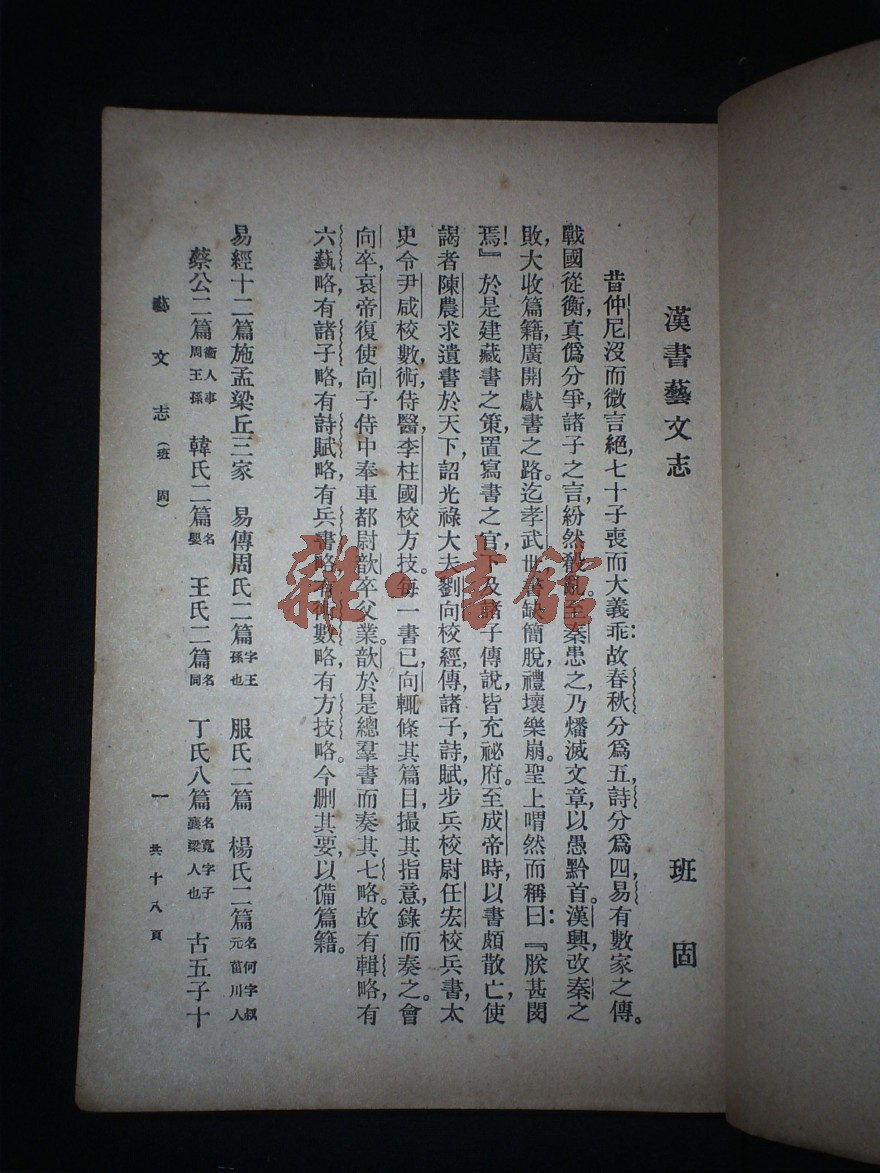 漢書藝文志 班固
昔仲尼沒而微言絕，七十子喪而大義乖：故春秋分為五，詩分為四，易有數家之傳。
戰國從衡，真偽分爭，諸子之言，紛然殽亂。至秦患之，乃燔滅文章，以愚黔首。漢興，改秦之
敗，大收篇籍，廣開獻書之路。迄孝武世，書缺簡脫，禮壞樂崩。聖上喟然而稱曰：『朕甚閔
焉！』於是建藏書之策，置寫書之官，下及諸子傳說，皆充祕府。至成帝時，以書頗散亡，使
謁者陳農求遺書於天下，詔光祿大夫劉向校經，傳，諸子，詩，賦，步兵校尉任宏校兵書，太
史令尹咸校數術，侍醫，李柱國校方技。每一書已，向輒條其篇目，撮其指意，錄而奏之。會
向卒，哀帝復使向子侍中奉車都尉歆卒父業。歆於是總羣書而奏其七略。故有輯略，有
六藝略，有諸子略，有詩賦略，有兵書略，有術數略，有方技略。今刪其要，以備篇籍。
易經十二篇施孟梁丘三家 易傳周氏二篇字王孫也 服氏二篇 楊氏二篇名何字叔元菑川人
蔡公二篇衞人事周王孫 韓氏二篇名嬰 王氏二篇名同 丁氏八篇名寬字子襄梁人也 古五子十
藝文志（班固） 一 共十八頁
雜·書館